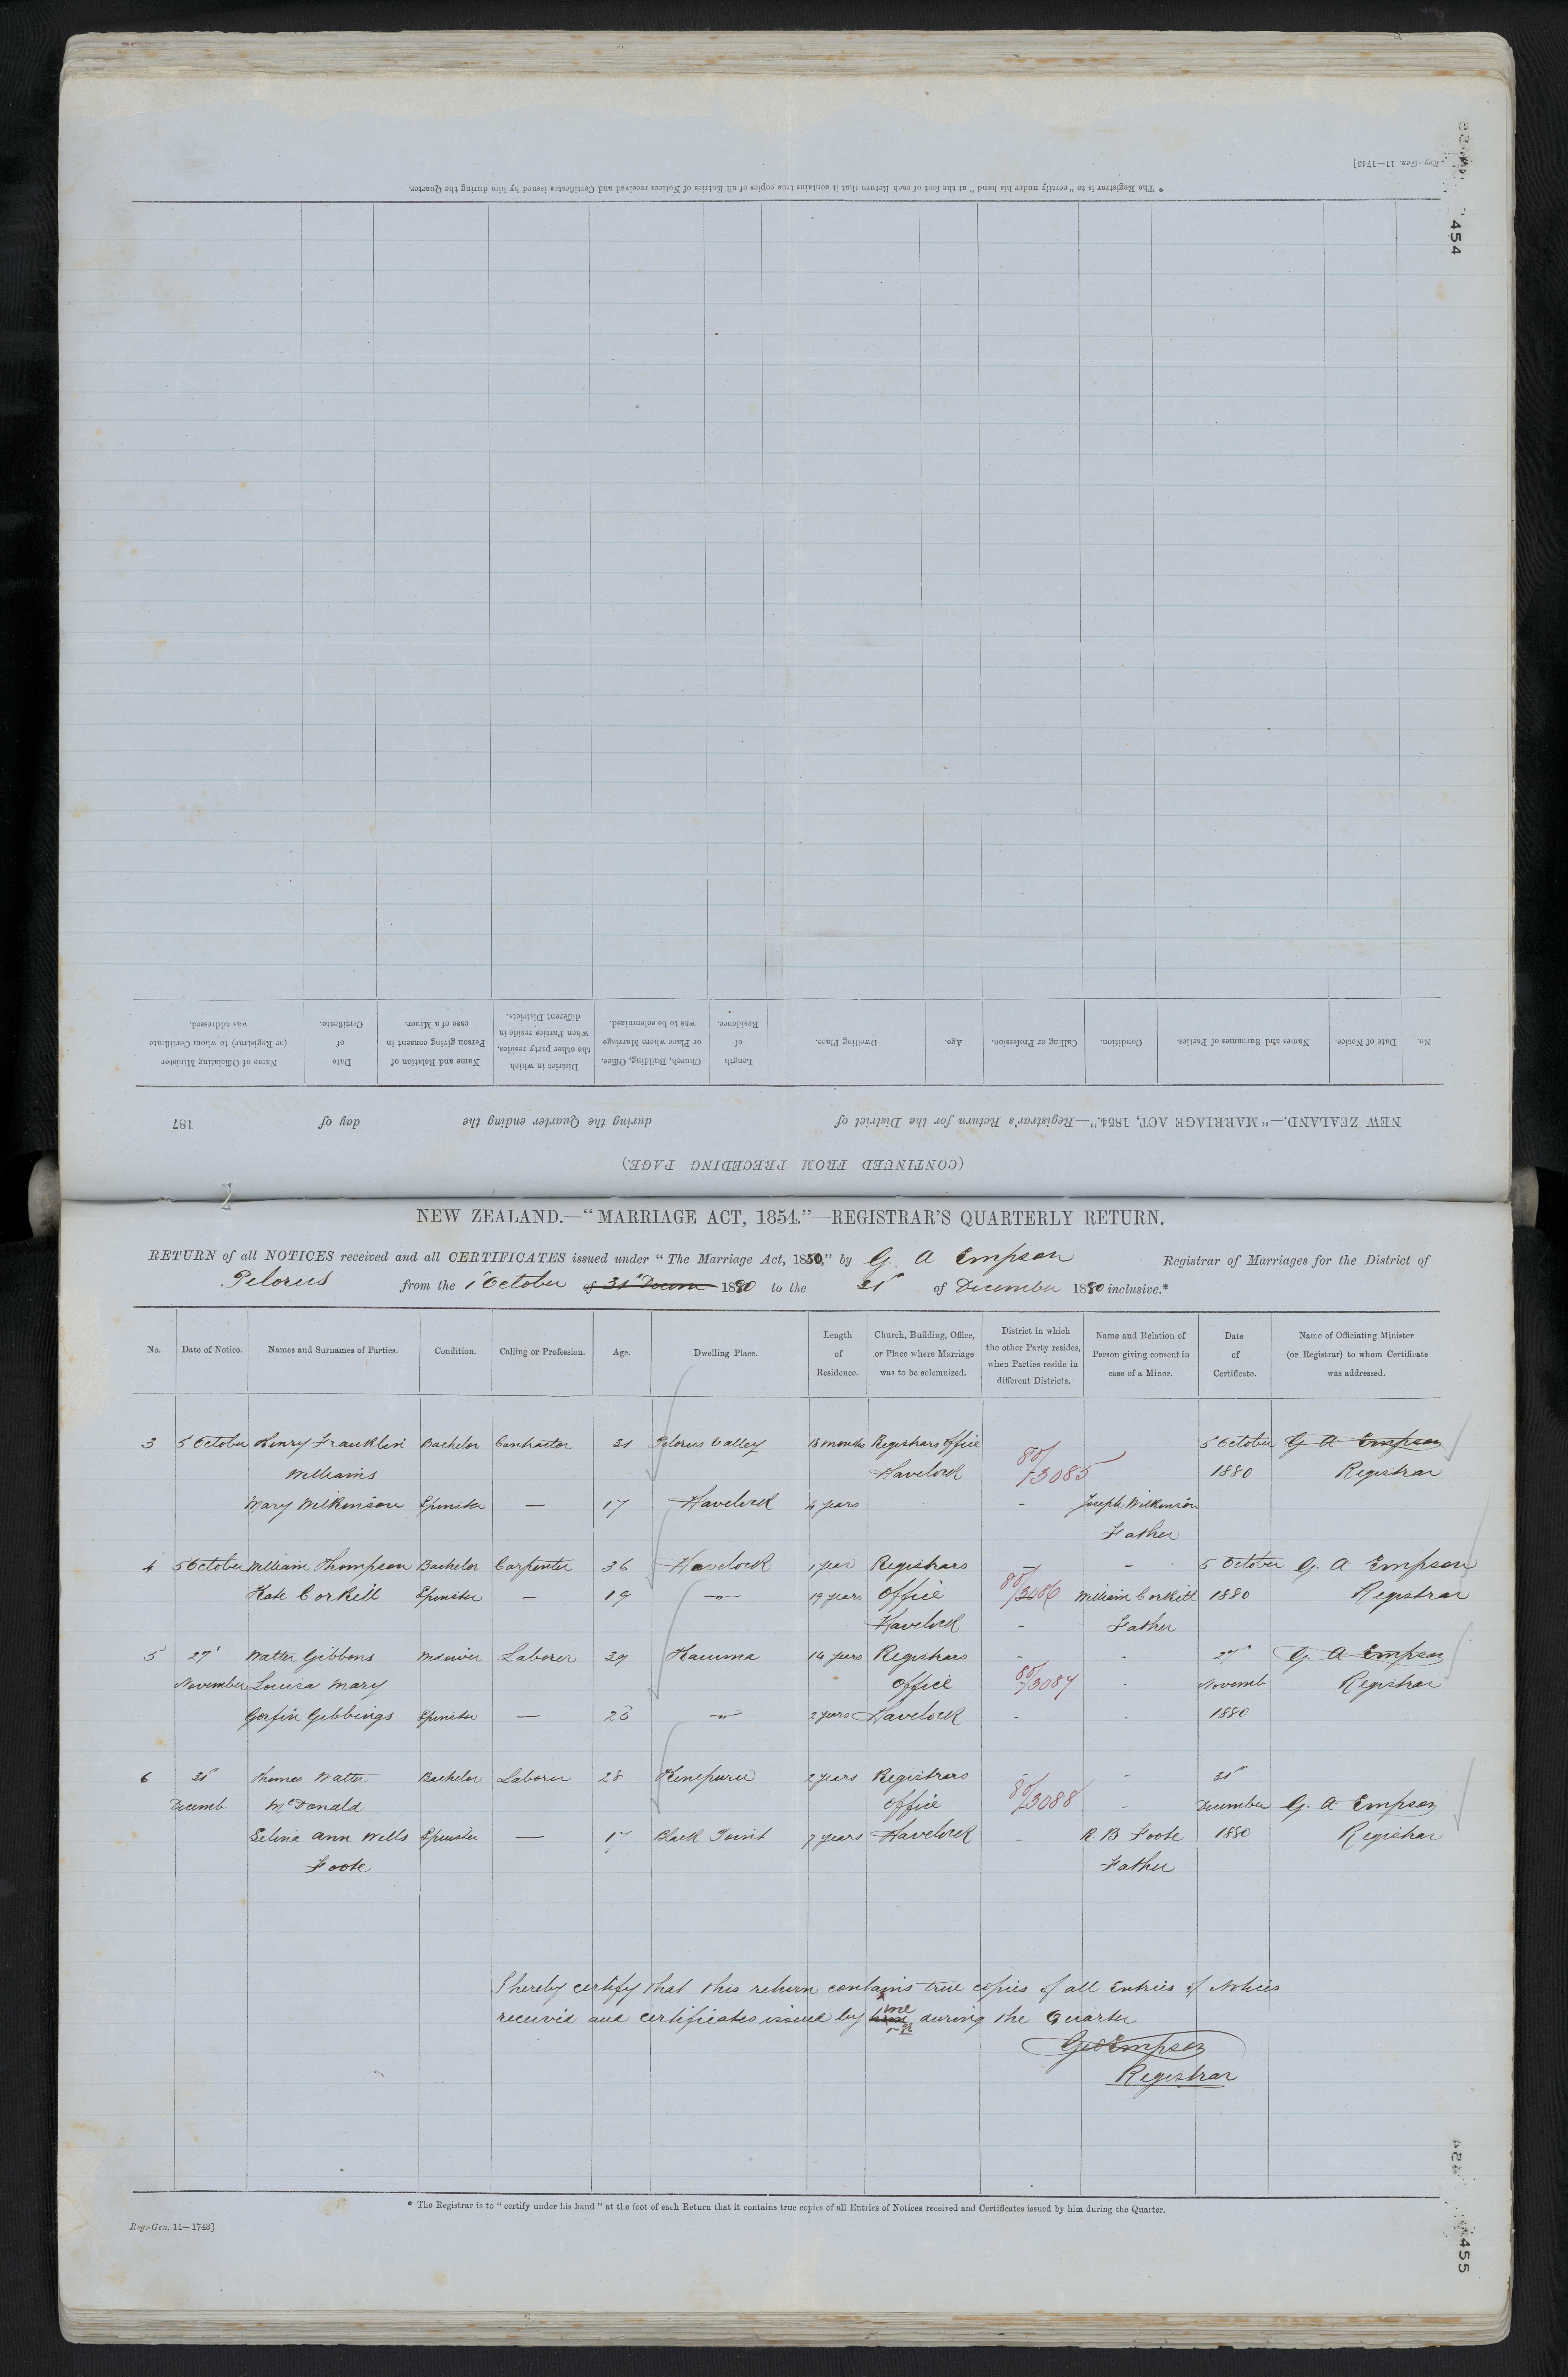 Reg.-Gen. 11—1743]
454
* The Registrar is to "certify under his hand" at the foot of each Return that it contains true copies of all Entries of Notices received and Certificates issued by him during the Quarter.
No. Date of Notice. Names and Surnames of Parties. Condition. Calling or Profession. Age. Dwelling Place. Length of Residence. Church, Building, Office, or Place where Marriage was to be solemnized. District in which the other party resides, when Parties reside in different Districts. Name and Relation of Person giving consent in case of a Minor. Date of Certificate. Name of Officiating Minister (or Registrar) to whom Certificate was addressed.
NEW ZEALAND.—"MARRIAGE ACT, 1854."—Registrar's Return for the District of during the Quarter ending the day of 187
(CONTINUED FROM PRECEDING PAGE.)
NEW ZEALAND.—"MARRIAGE ACT, 1854."—REGISTRAR'S QUARTERLY RETURN.
RETURN of all NOTICES received and all CERTIFICATES issued under "The Marriage Act, 1880," by G. A Empson Registrar of Marriages for the District of
Pelorus from the 1st October 1880 to the 31st of December 1880 inclusive.*
No. Date of Notice. Names and Surnames of Parties. Condition. Calling or Profession. Age. Dwelling Place. Length of Residence. Church, Building, Office, or Place where Marriage was to be solemnized. District in which the other Party resides, when Parties reside in different Districts. Name and Relation of Person giving consent in case of a Minor. Date of Certificate. Name of Officiating Minister (or Registrar) to whom Certificate was addressed.
3 5 October Henry Franklin Bachelor Contractor 21 Pelorus Valley 18 months Registrars Office 5 October G A Empson
Williams Havelock 80/3085 1880 Registrar
Mary Wilkinson Spinster — 17 Havelock 4 years - Joseph Wilkinson
Father
4 5 October William Thompson Bachelor Carpenter 36 Havelock 1 year Registrars - - 5 October G. A Empson
Kate Corkill Spinster — 19 —"— 19 years Office 80/3086 William Corkill 1880 Registrar
Havelock - Father
5 27th Walter Gibbons Widower Laborer 39 Kaiuma 14 years Registrars - - 27th G. A Empson
November Louisa Mary Office 80/3087 - Novemb Registrar
Gibbings Spinster — —"— 2 years Havelock - - 1880
6 31st Thomas Walter Bachelor Laborer 28 Kenepuru 2 years Registrars - - 31st
Decemb McDonald Office 80/3088 - December G. A Empson
Selina Ann Wells Spinster — 17 Black Point 7 years Havelock - R B Foote 1880 Registrar
Foote Father
I hereby certify that this return contains true copies of all Entries of Notices
received and certificates issued by me during the Quarter
Geo Empson
Registrar
* The Registrar is to "certify under his hand" at the foot of each Return that it contains true copies of all Entries of Notices received and Certificates issued by him during the Quarter.
Reg.-Gen. 11—1743]
455